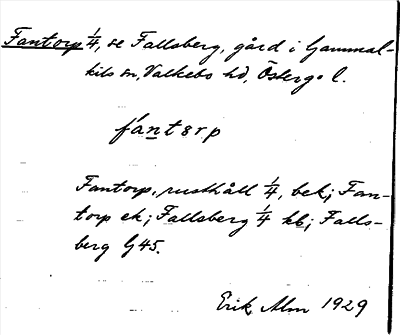 Fantorp 1/4, se Fallsberg, gård i Gammal-
kils sn, Valkebo hd, Österg. l.
fántɜrp
Fantorp, rusthåll 1/4, bek; Fan-
torp ek; Fallsberg 1/4 kb; Falls-
berg G45.
Erik Alm 1929